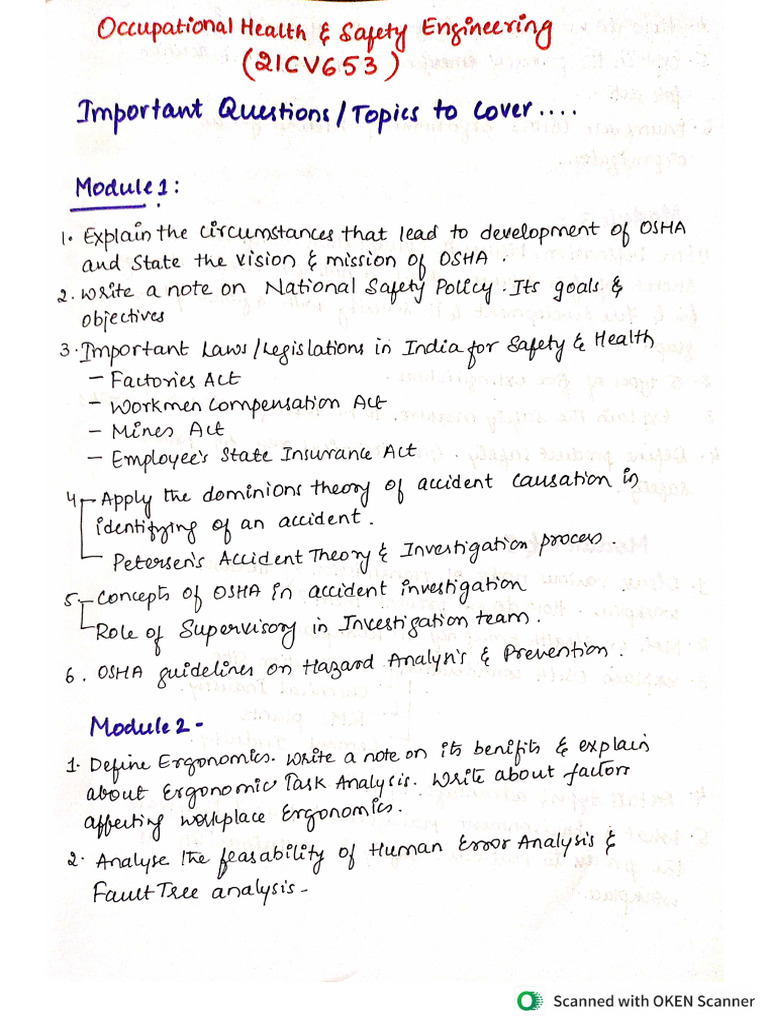 Occupational Health & Safety Engineering
(21CV653)
Important Questions/Topics to Cover....
Module 1:
1. Explain the circumstances that lead to development of OSHA
and State the vision & mission of OSHA
2. Write a note on National Safety Policy. Its goals &
objectives
3. Important Laws/Legislations in India for Safety & Health
- Factories Act
- Workmen Compensation Act
- Mines Act
- Employee's State Insurance Act
4 - Apply the dominions theory of accident causation in
identifying of an accident.
- Petersen's Accident Theory & Investigation process.
5 - Concepts of OSHA in accident investigation
- Role of Supervisory in Investigation team.
6. OSHA guidelines on Hazard Analysis & Prevention.
Module 2 -
1. Define Ergonomics. Write a note on its benifits & explain
about Ergonomic Task Analysis. Write about factors
affecting workplace Ergonomics.
2. Analyse the feasability of Human Error Analysis &
Fault Tree analysis -
Scanned with OKEN Scanner